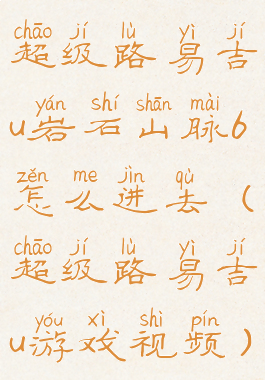 chāo jí lù yì jí
超级路易吉
yán shí shān mài
u岩石山脉6
zěn me jìn qù
怎么进去（
chāo jí lù yì jí
超级路易吉
yóu xì shì pín
u游戏视频）